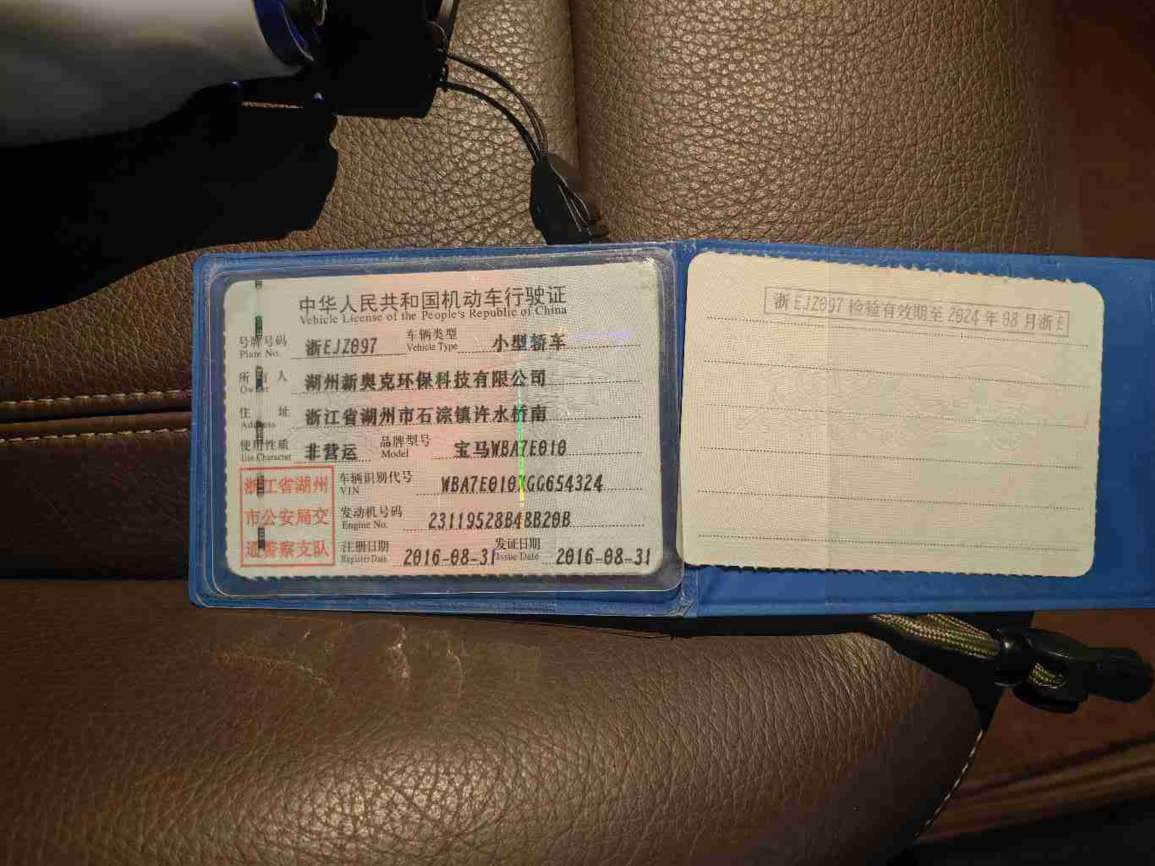 中华人民共和国机动车行驶证
Vehicle License of the People's Republic of China
号牌号码 浙EJZ097 车辆类型 小型轿车
Plate No. Vehicle Type
所有人 湖州新奥克环保科技有限公司
Owner
住址 浙江省湖州市石淙镇许水桥南
Address
使用性质 非营运 品牌型号 宝马WBA7E010
Use Character Model
浙江省湖州
市公安局交
通警察支队
车辆识别代号 WBA7E010XGG654324
VIN
发动机号码 23119528B48B20B
Engine No.
注册日期 2016-08-31 发证日期 2016-08-31
Register Date Issue Date
浙EJZ097 检验有效期至 2024 年 08 月浙E